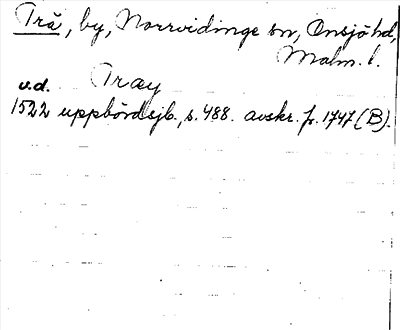 Trä, by, Norrvidinge sn, Onsjö hd,
Malm. l.
v.d. Træy
1522 uppbördsjb., s. 488. avskr. fr. 1747 (B).